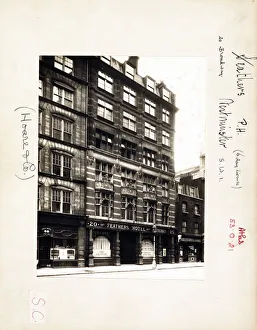 Feathers P.H.
20 Broadway
Westminster S.W.1.
(Hoare & Co)
20 FEATHERS HOTEL
S.C.